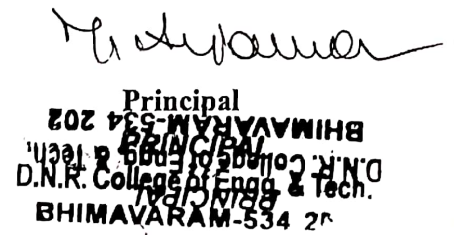 Principal
BHIMAVARAM-534 202
PRINCIPAL
D.N.R. College of Engg & Tech.
D.N.R. College of Engg. & Tech.
PRINCIPAL
BHIMAVARAM-534 2